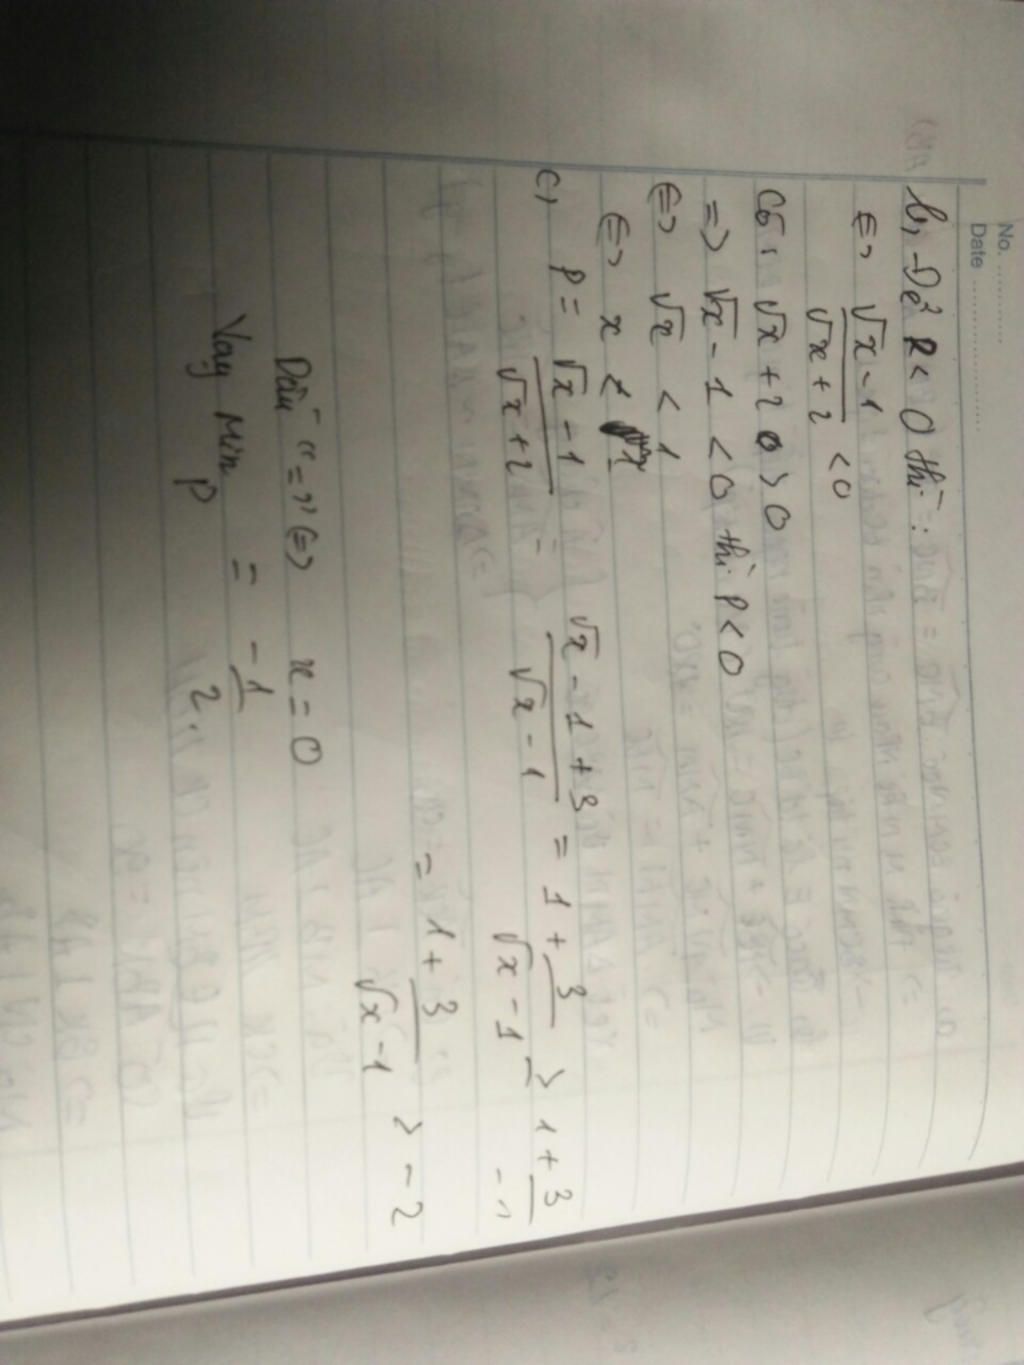 No. ............
Date ........................
b, Để P < 0 thì:
<=> √x - 1 / √x + 2 < 0
Có: √x + 2 > 0
=> √x - 1 < 0 thì P < 0
<=> √x < 1
<=> x < 1
c, P = √x - 1 / √x + 2 = √x - 1 + 3 / √x - 1 = 1 + 3 / √x - 1 ≥ 1 + 3 / -1
= 1 + 3 / √x - 1 > -2
Dấu "=" <=> x = 0
Vay Min P = -1 / 2.